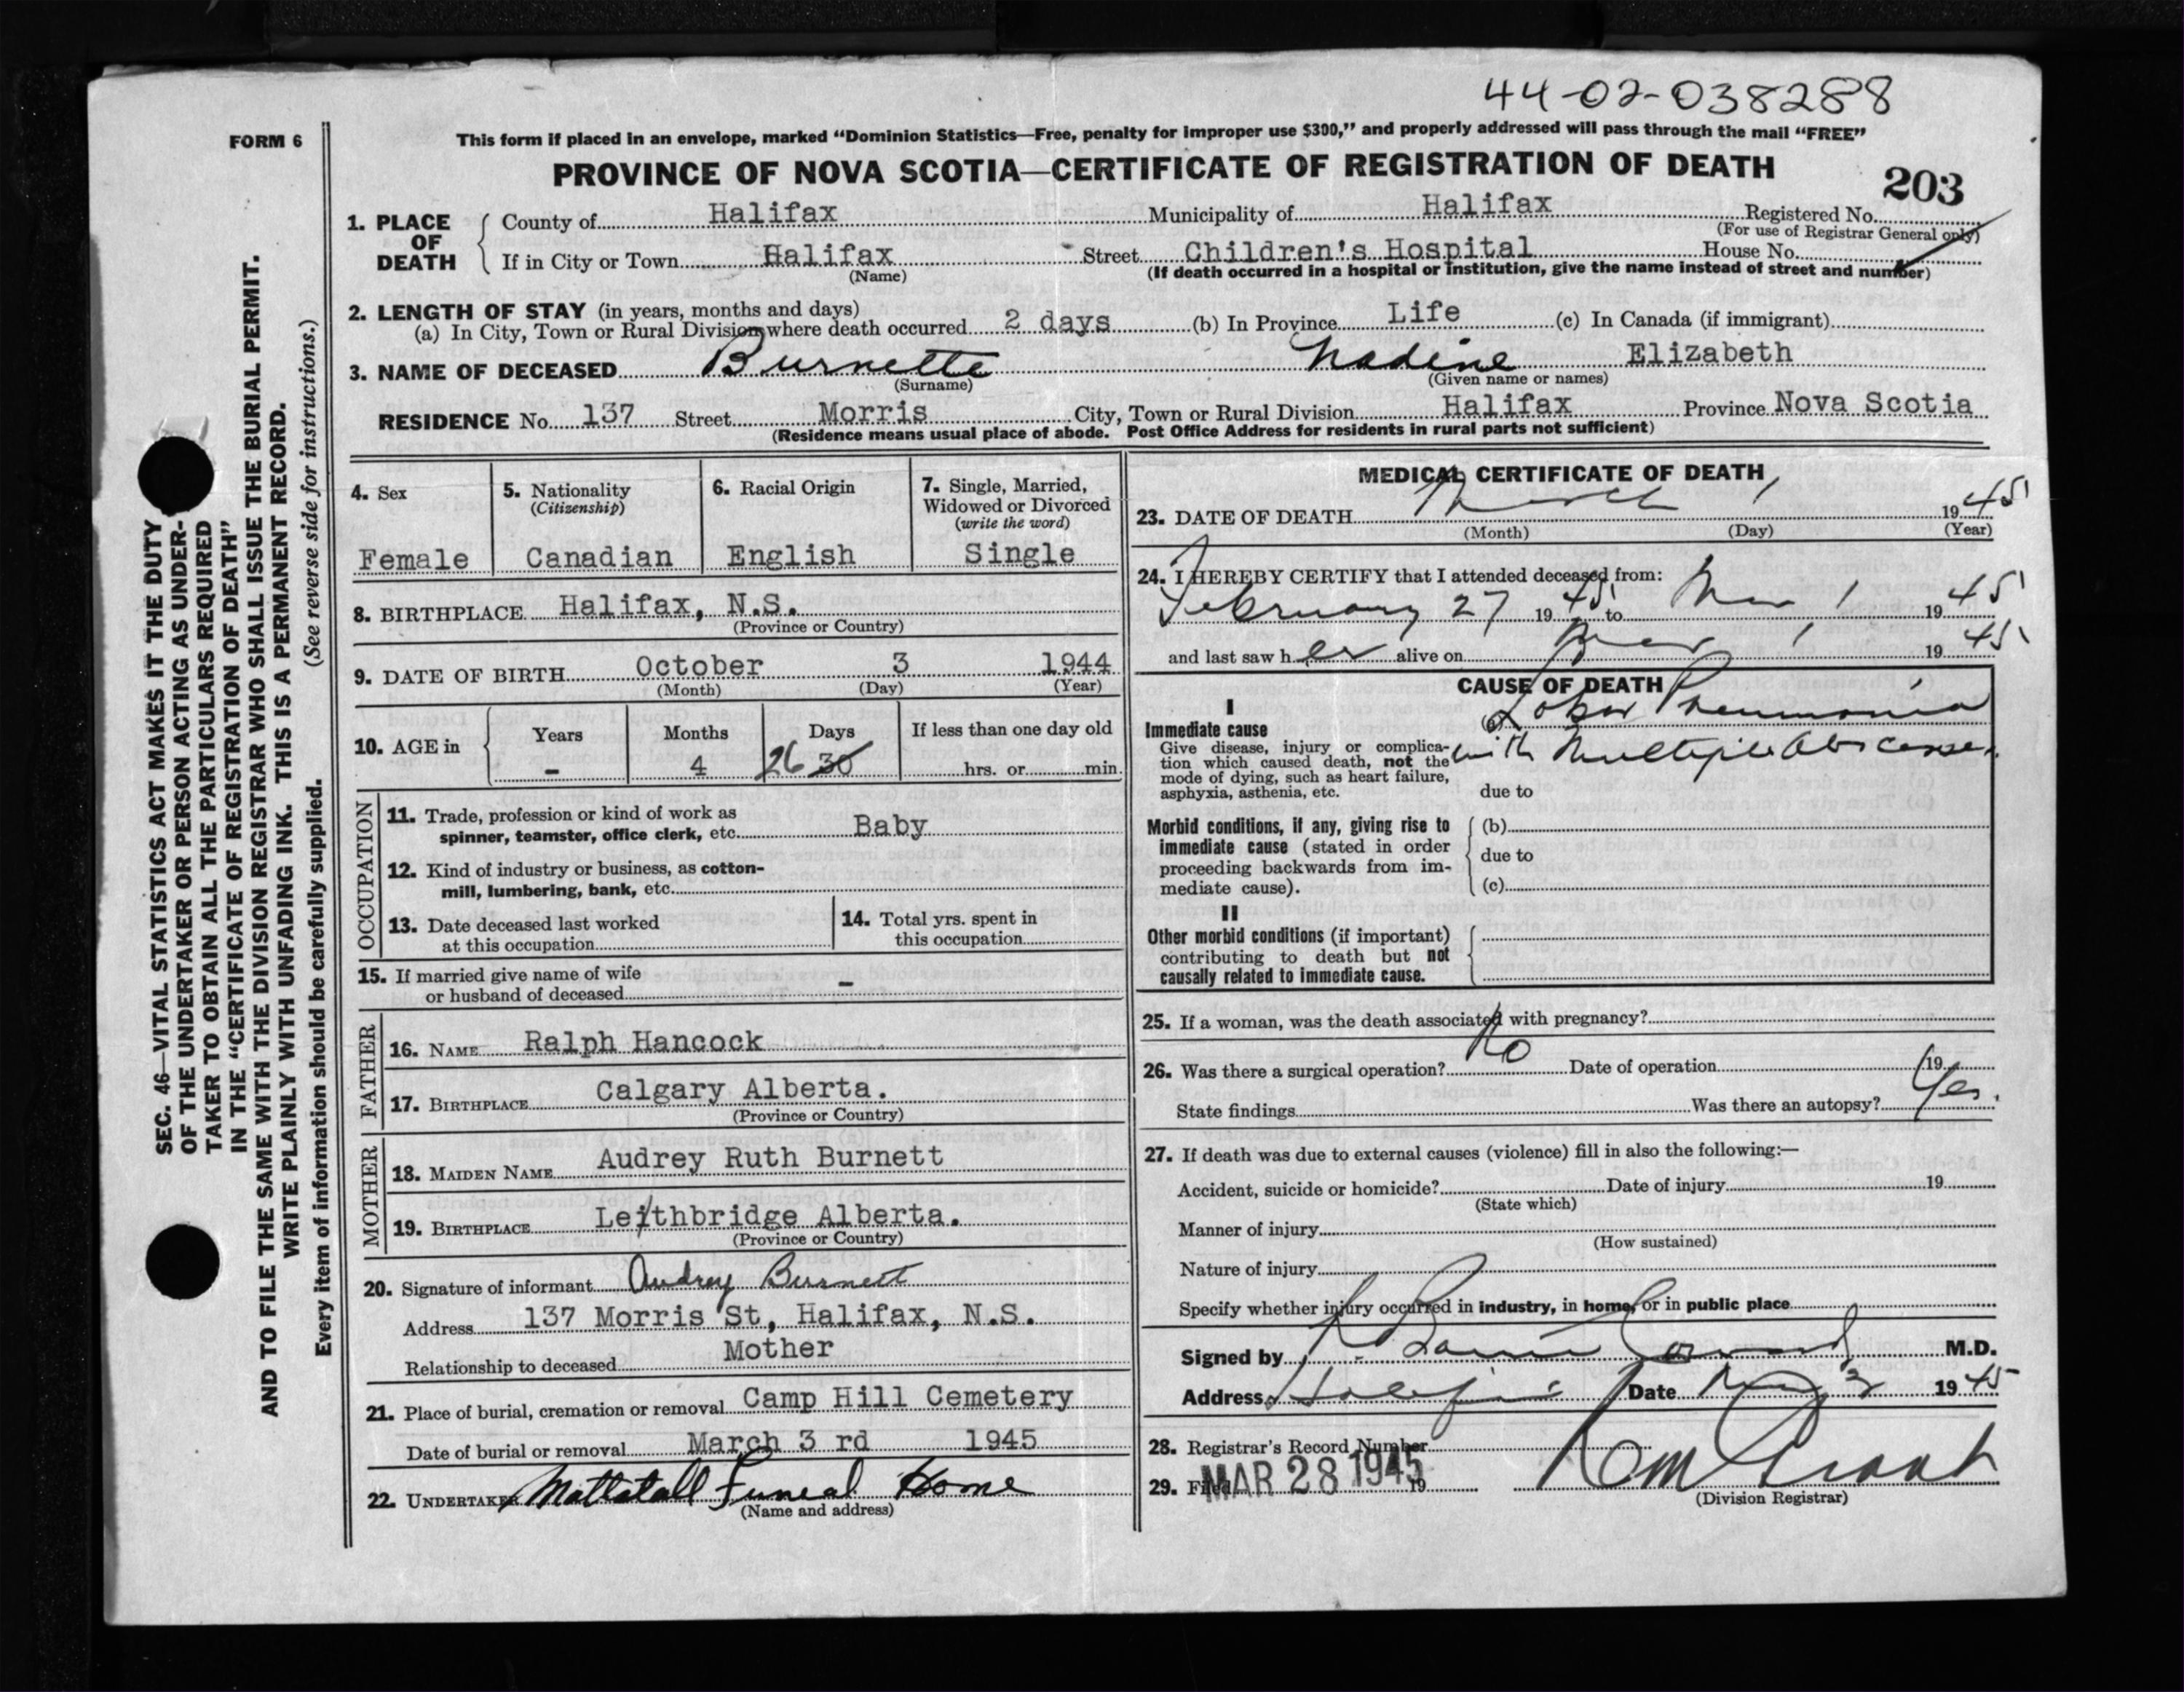 44-02-038288
FORM 6
This form if placed in an envelope, marked "Dominion Statistics—Free, penalty for improper use $300," and properly addressed will pass through the mail "FREE"
PROVINCE OF NOVA SCOTIA—CERTIFICATE OF REGISTRATION OF DEATH
203
1. PLACE OF DEATH
County of Halifax Municipality of Halifax Registered No.
(For use of Registrar General only)
If in City or Town Halifax Street Children's Hospital House No.
(Name) (If death occurred in a hospital or institution, give the name instead of street and number)
2. LENGTH OF STAY (in years, months and days)
(a) In City, Town or Rural Division where death occurred 2 days (b) In Province Life (c) In Canada (if immigrant)
3. NAME OF DECEASED Burnette Nadine Elizabeth
(Surname) (Given name or names)
RESIDENCE No. 137 Street Morris City, Town or Rural Division Halifax Province Nova Scotia
(Residence means usual place of abode. Post Office Address for residents in rural parts not sufficient)
SEC. 46—VITAL STATISTICS ACT MAKES IT THE DUTY
OF THE UNDERTAKER OR PERSON ACTING AS UNDER-
TAKER TO OBTAIN ALL THE PARTICULARS REQUIRED
IN THE "CERTIFICATE OF REGISTRATION OF DEATH"
AND TO FILE THE SAME WITH THE DIVISION REGISTRAR WHO SHALL ISSUE THE BURIAL PERMIT.
WRITE PLAINLY WITH UNFADING INK. THIS IS A PERMANENT RECORD.
Every item of information should be carefully supplied. (See reverse side for instructions.)
4. Sex
Female
5. Nationality
(Citizenship)
Canadian
6. Racial Origin
English
7. Single, Married,
Widowed or Divorced
(write the word)
Single
8. BIRTHPLACE Halifax, N.S.
(Province or Country)
9. DATE OF BIRTH October 3 1944
(Month) (Day) (Year)
10. AGE in
Years Months Days If less than one day old
- 4 26 30 hrs. or min.
OCCUPATION
11. Trade, profession or kind of work as
spinner, teamster, office clerk, etc. Baby
12. Kind of industry or business, as cotton-
mill, lumbering, bank, etc.
13. Date deceased last worked
at this occupation
14. Total yrs. spent in
this occupation
15. If married give name of wife
or husband of deceased -
FATHER
16. NAME Ralph Hancock
17. BIRTHPLACE Calgary Alberta.
(Province or Country)
MOTHER
18. MAIDEN NAME Audrey Ruth Burnett
19. BIRTHPLACE Leithbridge Alberta.
(Province or Country)
20. Signature of informant Audrey Burnett
Address 137 Morris St, Halifax, N.S.
Relationship to deceased Mother
21. Place of burial, cremation or removal Camp Hill Cemetery
Date of burial or removal March 3 rd 1945
22. UNDERTAKER Mattatall Funeral Home
(Name and address)
MEDICAL CERTIFICATE OF DEATH
23. DATE OF DEATH March 1 1945
(Month) (Day) (Year)
24. I HEREBY CERTIFY that I attended deceased from:
February 27 1945 to Mar 1 1945
and last saw her alive on Mar 1 1945
CAUSE OF DEATH
I
Immediate cause
Give disease, injury or complica-
tion which caused death, not the
mode of dying, such as heart failure,
asphyxia, asthenia, etc.
(a) Lobar Pneumonia
with Multiple Abscesses
due to
Morbid conditions, if any, giving rise to
immediate cause (stated in order
proceeding backwards from im-
mediate cause).
(b)
due to
(c)
II
Other morbid conditions (if important)
contributing to death but not
causally related to immediate cause.
25. If a woman, was the death associated with pregnancy?
26. Was there a surgical operation? No Date of operation 19
State findings Was there an autopsy? Yes.
27. If death was due to external causes (violence) fill in also the following:—
Accident, suicide or homicide? Date of injury 19
(State which)
Manner of injury
(How sustained)
Nature of injury
Specify whether injury occurred in industry, in home, or in public place
Signed by M.D.
Address Halifax Date 1945
28. Registrar's Record Number
29. Filed MAR 28 1945 19
(Division Registrar)